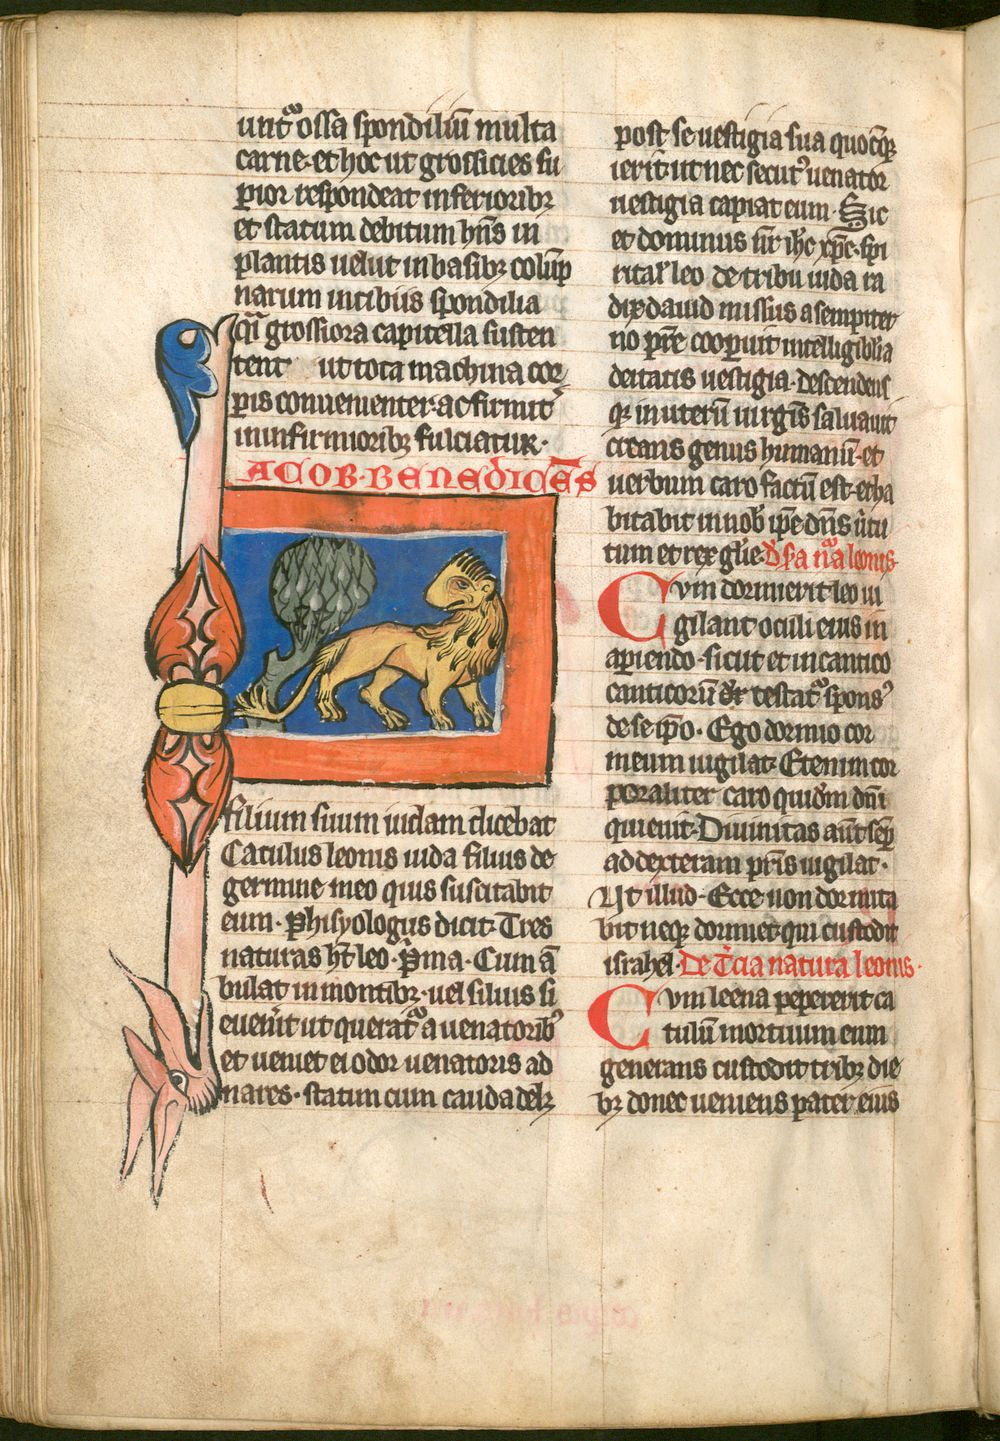 untᷣ ossa spondiliū multa
carne. et hoc ut grossicies su
pior respondeat inferioribꝫ
et statum debitum hn̄s in
plantis uelut in basibꝫ colūp
narum in tibiis spondilia
qͥ grossiora capitella susten
tent ut tota machina cor
ꝑis conuenienter ac firmit᷑
in infirmioribꝫ fulciatur.
ACOB. BENEDICĒS
filium suum iudam dicebat
Catulus leonis iuda filius de
germine meo quis suscitabit
eum. Phisyologus dicit. Tres
naturas ht̄ leo. Pͥma. Cum ā
bulat in montibꝫ. uel siluis si
euen̄it ut querat᷑ a uenatoribꝰ
et ueniet ei odor uenatoris ad
nares. statim cum cauda delꝫ
post se uestigia sua quocūqꝫ
ierit. ut nec secutꝰ uenator
uestigia capiat eum. Sic
et dominus nr̄ ih̄c xp̄c. spi
rital' leo de tribu iuda ra
dix dauid missus a sempiter
no pr̄e cooꝑuit intelligibilia
deitatis uestigia. descendens
qꝫ in uterū uirgīs saluauit
creans genus humanū. et
uerbum caro factū est. et ha
bitabit in nob' ip̄e dn̄s ūtu
tum et rex gl'e. D' scͣda nᷓa leonis.
Cvm dormierit leo ui
gilant oculi eius in
apiendo. sicut et in cantico
canticorū dr̄ testat᷑ sponsꝰ
de se ip̄o. Ego dormio cor
meum uigilat. Etenim cor
poraliter caro quidm̄ dn̄i
quieuit. Diuinitas aūt sēꝑ
ad dexteram pr̄is uigilat.
Ut illud. Ecce non dormita
bit neqꝫ dormiet qui custodit
israhel. De t̄cia natura leonis.
Cvm leena pepererit ca
tulū mortuum eum
generans custodit tribꝫ die
bꝫ donec ueniens pater eius